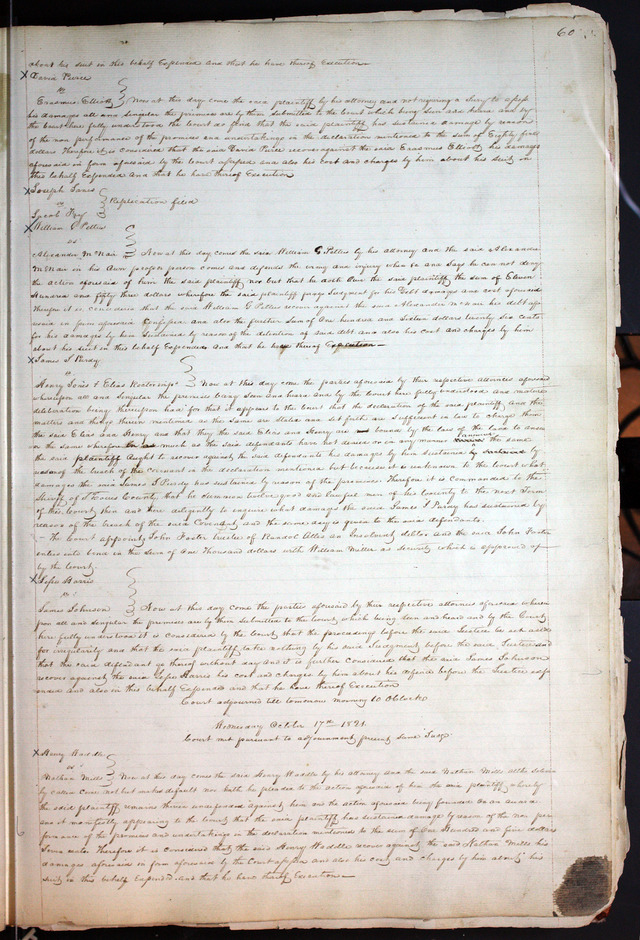 60
about his suit in this behalf Expended and that he have thereof Execution
X David Pierce
vs
Erasmus Elliott } Now at this day come the said plaintiff by his attorney and not requiring a Jury to assess
his damages all and singular the premises are by them submitted to the court which being seen and heard and by
the court here fully understood the court do find that the said plaintiff has sustained damage by reason
of the non performance of the promises and undertakings in the declaration mentioned to the sum of Eighty five
dollars Therefore it is considered that the said David Pierce recover against the said Erasmus Elliott his damages
aforesaid in form aforesaid by the court assessed and also his cost and charges by him about his suit in
this behalf Expended and that he have thereof Execution
X Joseph Jones
vs } Replication filed
Jacob Fry
X William G Pettus
vs
Alexander McNair } Now at this day comes the said William G Pettus by his attorney and the said Alexander
McNair in his own proper person comes and defends the wrong and injury when &c and says he can not deny
the action aforesaid of him the said plaintiff nor but that he doth owe the said plaintiff the sum of Eleven
Hundred and fifty three dollars wherefore the said plaintiff prays Judgment for his Debt damages and cost aforesaid
Therefore it is considered that the said William G Pettus recover against the said Alexander McNair his debt afore
said in form aforesaid Confessed and also the further sum of One hundred and Sixteen dollars twenty six cents
for his damages by him Sustained by reason of the detention of said debt and also his cost and charges by him
about his suit in this behalf Expended and that he have thereof Execution
X James S. Purdy
vs
Henry Jones & Elias } Now at this day come the parties aforesaid by their respective attornies aforesaid
whereupon all and singular the premises being seen and heard and by the Court here fully understood and mature
deliberation being thereupon had for that it appears to the Court that the declaration of the said plaintiff and the
matters and things therein mentioned as the same are stated and set forth are sufficient in law to charge them
the said Elias and Henry and that they the said Elias and Henry are bound by the law of the land to answer
to the same wherefore in as much as the said defendants have not denied or in any manner answered the same
the said plaintiff ought to recover against the said defendants his damages by him sustained by
reason of the breach of the covenant in the declaration mentioned but because it is unknown to the court what
damages the said James S Purdy has sustained by reason of the premises Therefore it is Commanded to the
Sheriff of St Louis County, that he summon twelve good and lawful men of his County to the next Term
of this Court, then and here diligently to enquire what damages the said James S Purdy has sustained by
reason of the breach of the said Covenant, and the same day is given to the said defendants.
The Court appoints John Foster trustee of an Insolvent debtor and the said John Foster
enters into bond in the sum of One Thousand dollars with William Miller as security which is approved of
by the Court
X John Harris
vs
James Johnson } Now at this day come the parties aforesaid by their respective attornies aforesaid where
upon all and singular the premises are by them Submitted to the Court, which being seen and heard and by the Court
here fully understood it is considered by the Court, that the proceedings before the said Justice be set aside
for irregularity and that the said plaintiff take nothing by his said Judgment before the said Justice and
that the said defendant go thereof without day and it is further Considered that the said James Johnson
recover against the said John Harris his cost and charges by him about his defence before the Justice afore
said and also in this behalf Expended and that he have thereof Execution
Court adjourned till tomorrow morning 10 Oclock
Wednesday October 17th 1821
Court met pursuant to adjournment, present same Judge
X Henry Waddle
vs
Nathan Mills } Now at this day comes the said Henry Waddle by his attorney and the said Nathan Mills altho solemnly
called came not but makes default nor hath he pleaded to the action aforesaid of him the said plaintiff whereby
the said plaintiff remains therein undefended against him and the action aforesaid being founded on an award
and it manifestly appearing to the Court, that the said plaintiff has sustained damage by reason of the non per
formance of the promises and undertakings in the declaration mentioned to the sum of One Hundred and five dollars
Therefore it is considered that the said Henry Waddle recover against the said Nathan Mills his
damages aforesaid in form aforesaid by the Court assessed and also his cost and charges by him about his
suit in this behalf Expended and that he have thereof Execution